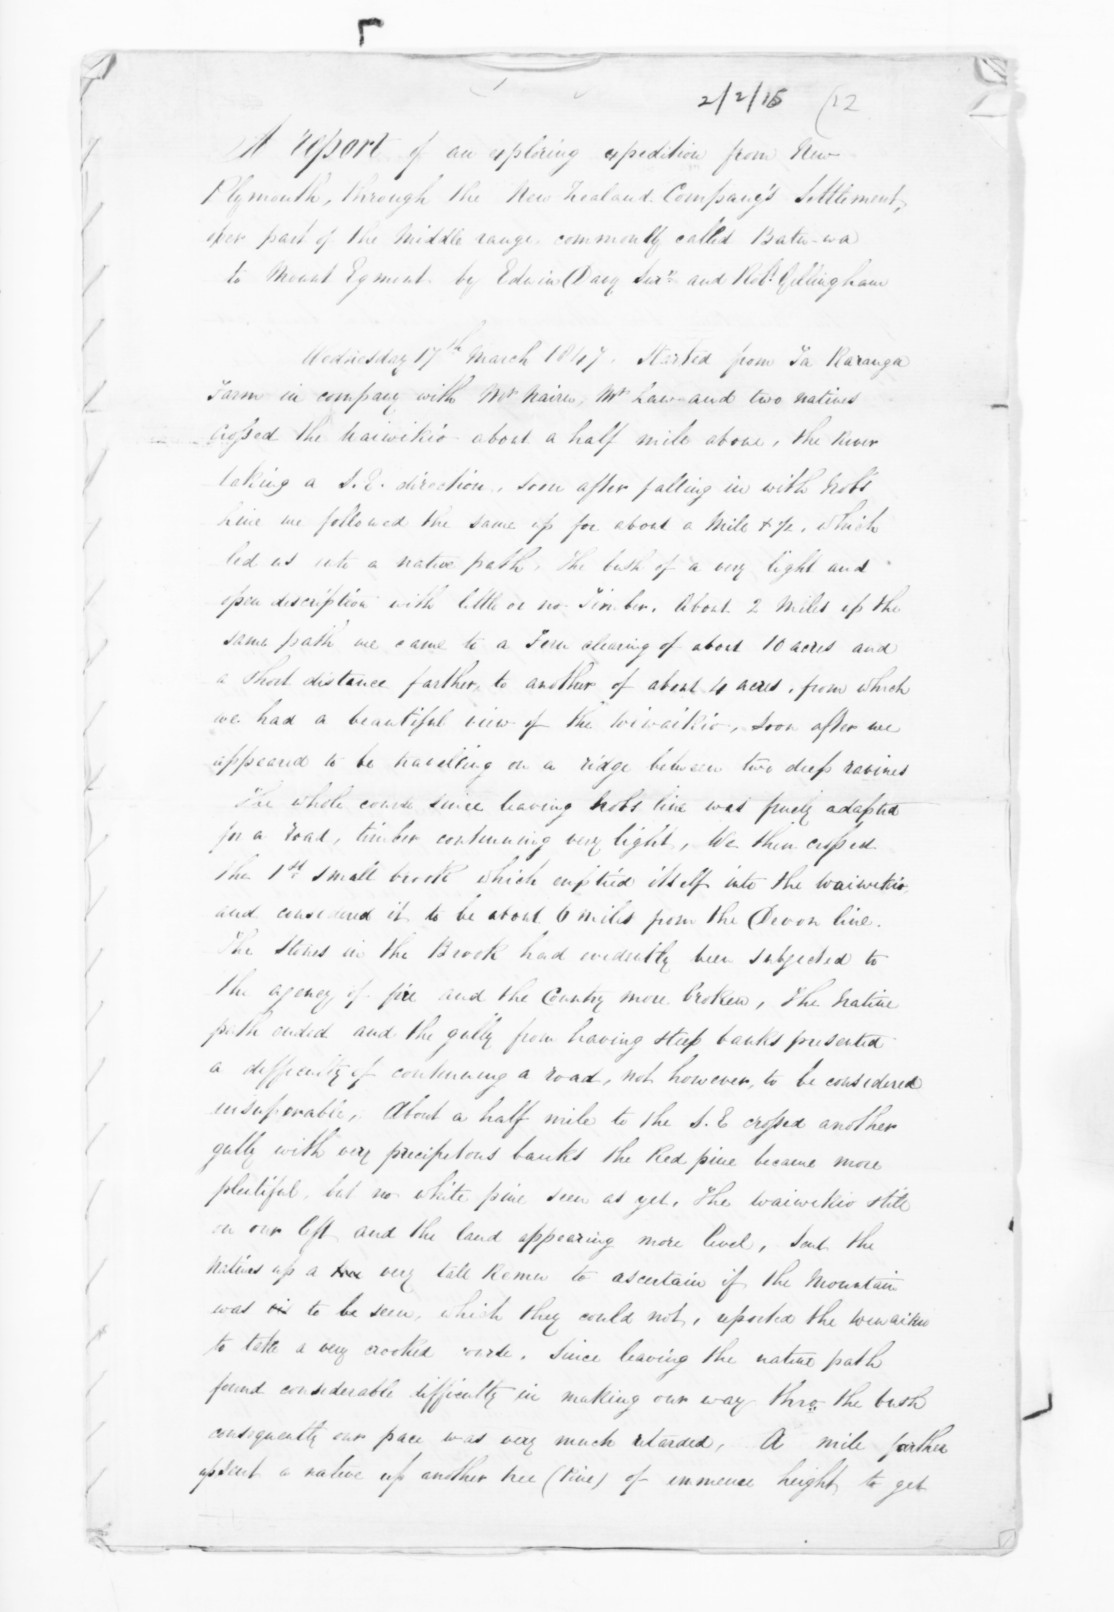 2/2/15 (12
A report of an exploring expedition from New
Plymouth, through the New Zealand Company's Settlement,
over part of the Middle range commonly called Patu-wa
to Mount Egmont by Edwin Davy Surr. and Robt. Gillingham
Wednesday 17th March 1847. Started from Ta Karanga
Farm in company with Mr Nairn, Mr Law and two natives
crossed the Waiwikio about a half mile above, the River
taking a S.E. direction, soon after falling in with Nobs
Line we followed the same up for about a Mile & ½, which
led us into a native path. The bush of a very light and
open description with little or no Timber. About 2 Miles up the
same path we came to a Fern clearing of about 10 acres and
a short distance farther, to another of about 4 acres, from which
we had a beautiful view of the Wiwaikio, Soon after we
appeared to be travelling on a ridge between two deep ravines
The whole course since leaving Nobs line was finely adapted
for a road, timber continuing very light, We then crossed
the 1st small brook which emptied itself into the Waiwikio
and considered it to be about 6 miles from the Devon line.
The stones in the Brook had evidently been subjected to
the agency of fire and the Country more broken, The Native
path ended and the gully from having steep banks presented
a difficulty of continuing a road, not however, to be considered
insuperable, About a half mile to the S.E crossed another
gully with very precipitous banks the Red pine became more
plentiful, but no white pine seen as yet. The Waiwikio still
on our left and the land appearing more level, Sent the
Natives up a tree very tall Remu to ascertain if the Mountain
was vis to be seen, which they could not, reported the Wiwaikio
to take a very crooked course. Since leaving the native path
found considerable difficulty in making our way thro the bush
consequently our pace was very much retarded, A mile farther
up sent a native up another tree (Pine) of immence height to get